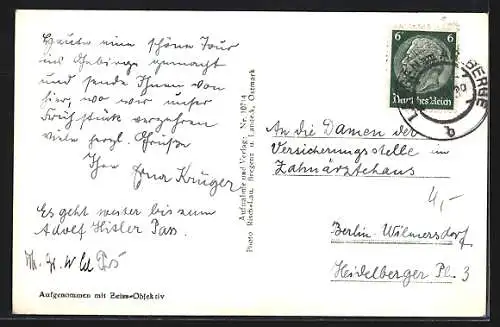 Heute eine schöne Tour
ins Gebirge gemacht
und sende Ihnen von
hier, wo wir unser
Frühstück verzehren
viele herzl. Grüße
Ihre Erna Krüger
Es geht weiter bis zum
Adolf Hitler Pass.
Aufgenommen mit Zeiss-Objektiv
Aufnahme und Verlag: Nr. 10714
Photo Risch-Lau, Bregenz u. Langen a. Ostmark
6 6
Deutsches Reich
BERGE
An die Damen der
Versicherungsstelle im
Zahnärztehaus
4,-
Berlin-Wilmersdorf
Heidelberger Pl. 3